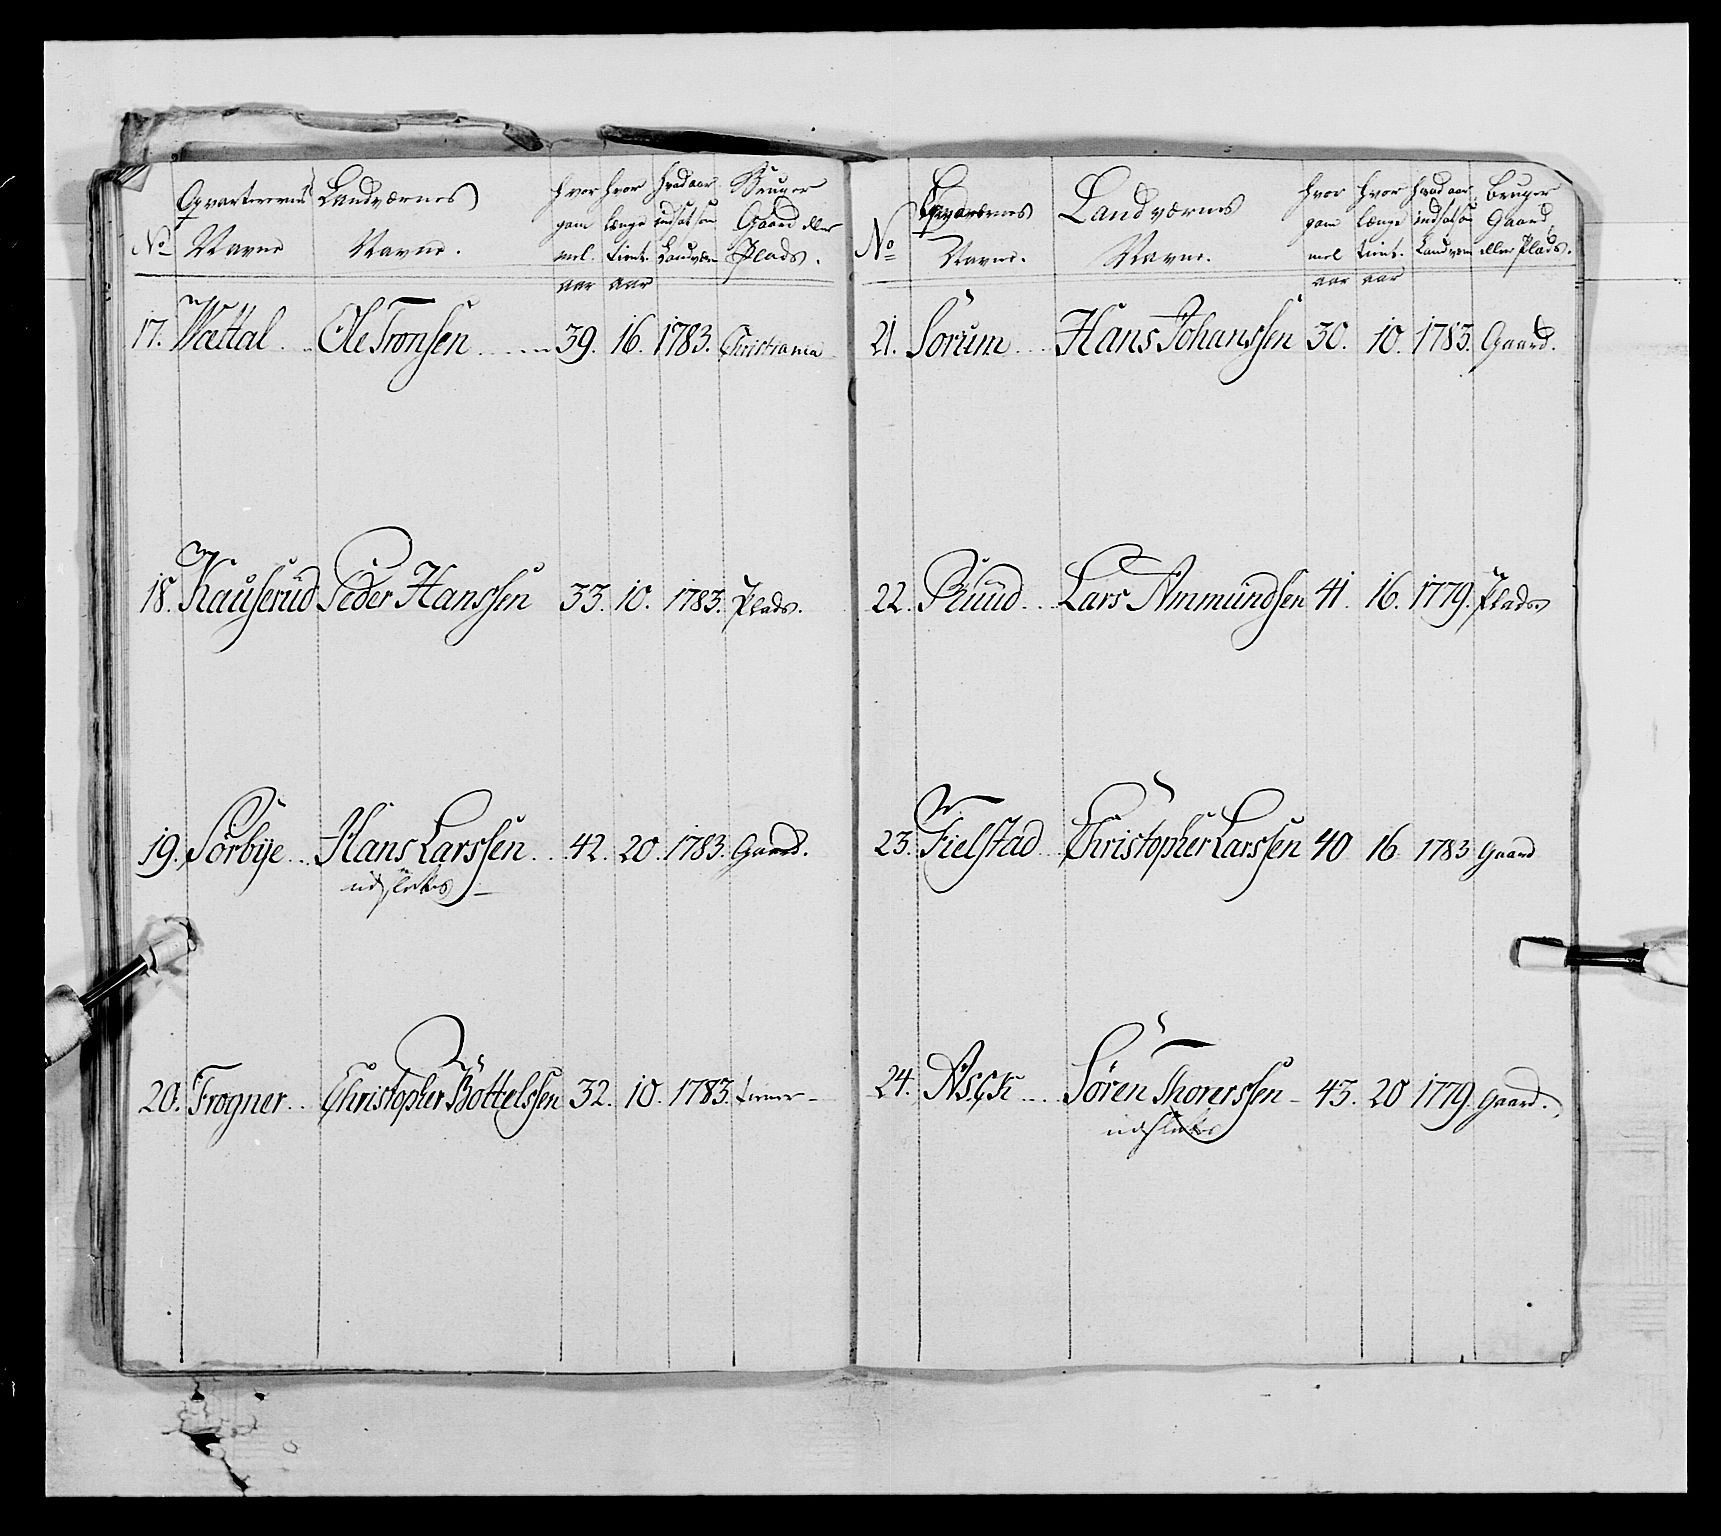 No Qvarterernes Navne Landværnes Navne. hvor gammel. aar hvor længe tient. aar hvad aar indsat som Landværn Bruger Gaard eller Plads.
17. Wattal Ole Tronsen 39. 16. 1783. Christiania
18. Kauserud Peder Hanssen 33. 10. 1783. Plads.
19. Sörbye Hans Larssen 42. 20. 1783. Gaard.
udslettes
20. Frogner Christopher Bottelssen 32. 10. 1783. tiener
No Navne. Landværnes Navne. hvor gammel aar hvor længe tient. aar hvad aar indsat som Landværn Bruger Gaard, eller Plads.
21. Sörum Hans Johanssen 30. 10. 1783. Gaard.
22. Ruud Lars Ammundsen 41. 16. 1779. Plads
23. Fielstad Christopher Larssen 40 16 1783 Gaard
24. Asck Sören Thorerssen 43. 20 1779. Gaard.
udslettes